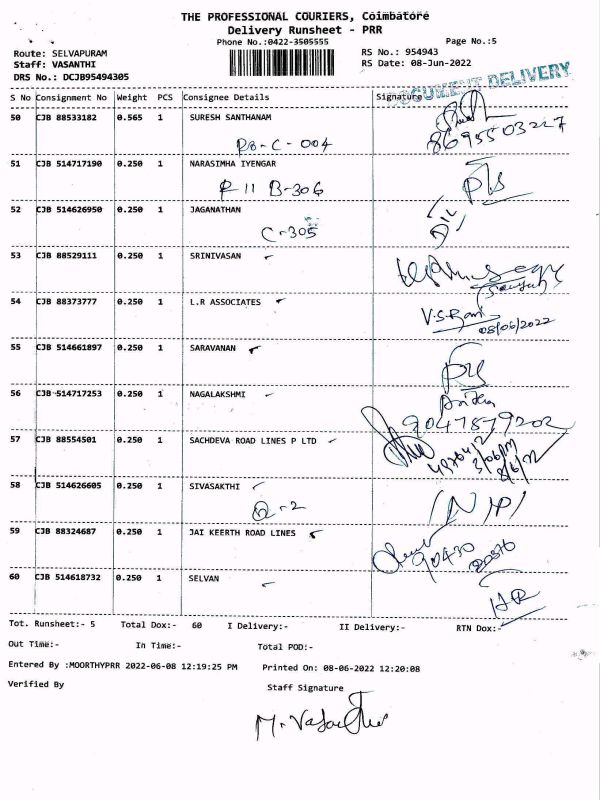 THE PROFESSIONAL COURIERS, Coimbatore
Delivery Runsheet - PRR
Phone No.:0422-3505555
Page No.:5
Route: SELVAPURAM
RS No.: 954943
Staff: VASANTHI
RS Date: 08-Jun-2022
DRS No.: DCJB95494305
DOCUMENT DELIVERY
S No Consignment No Weight PCS Consignee Details Signature
50 CJB 88533182 0.565 1 SURESH SANTHANAM
RB-C-004
8695503227
51 CJB 514717190 0.250 1 NARASIMHA IYENGAR
P 11 B-306
52 CJB 514626950 0.250 1 JAGANATHAN
C-305
53 CJB 88529111 0.250 1 SRINIVASAN
54 CJB 88373777 0.250 1 L.R ASSOCIATES
08/06/2022
55 CJB 514661897 0.250 1 SARAVANAN
56 CJB 514717253 0.250 1 NAGALAKSHMI
9047879202
57 CJB 88554501 0.250 1 SACHDEVA ROAD LINES P LTD
58 CJB 514626605 0.250 1 SIVASAKTHI
Q-2
59 CJB 88324687 0.250 1 JAI KEERTH ROAD LINES
90430
60 CJB 514618732 0.250 1 SELVAN
Tot. Runsheet:- 5 Total Dox:- 60 I Delivery:- II Delivery:- RTN Dox:-
Out Time:- In Time:- Total POD:-
Entered By :MOORTHYPRR 2022-06-08 12:19:25 PM Printed On: 08-06-2022 12:20:08
Verified By Staff Signature